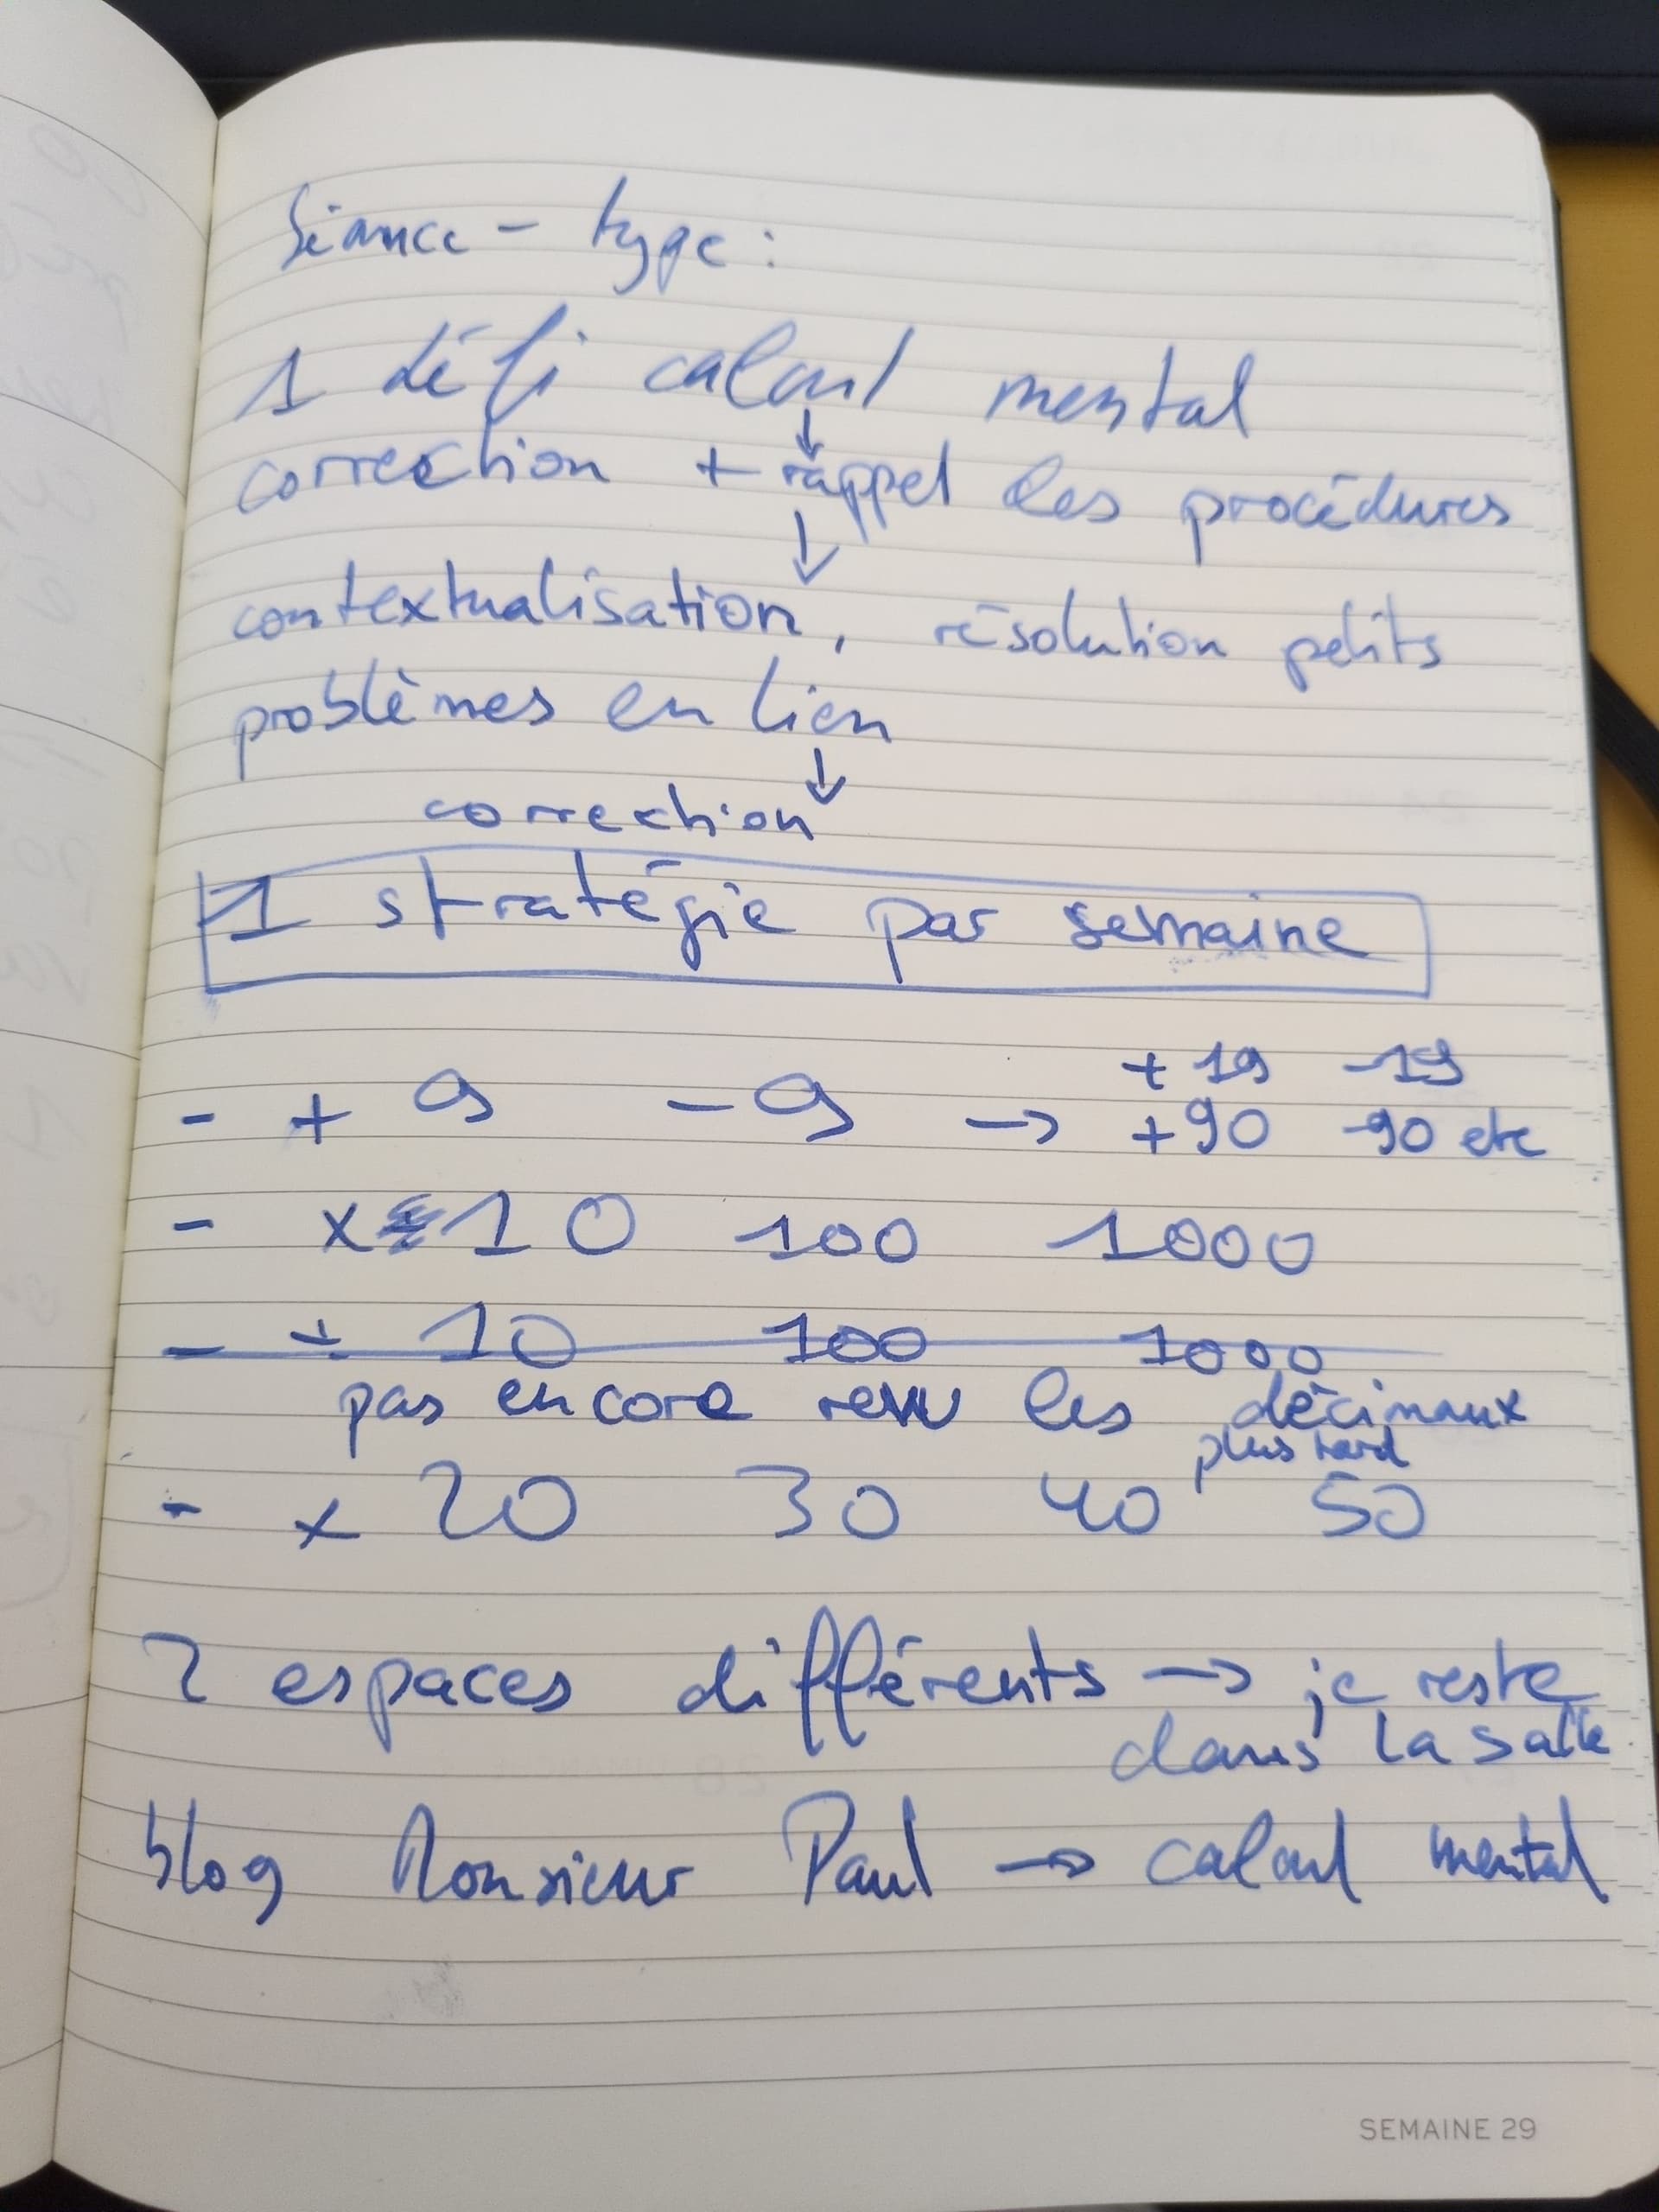 Séance - type :
1 défi calcul mental
↓
correction + rappel les procédures
↓
contextualisation, résolution petits
problèmes en lien
↓
correction
1 stratégie par semaine
+ 19 - 19
- + 9 - 9 → + 90 - 90 etc
- x 10 100 1000
- ÷ 10 100 1000
pas encore revu les décimaux
plus tard
- x 20 30 40 50
2 espaces différents → je reste
dans la salle
blog Monsieur Paul → calcul mental
SEMAINE 29